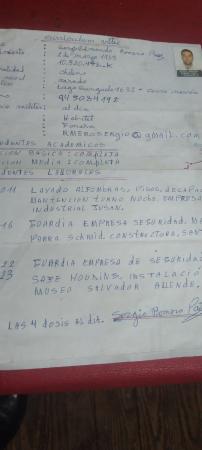 curriculum vitae
: 
: 2 de marzo 1959
: chileno
: casado
: Lago
: 945054192
: al dia
: Habitat
: Fonasa
: RMEROSERGIO@gmail.com
DENTES ACADEMICOS
CION BASICA: COMPLETA
CION MEDIA: COMPLETA
DENTES LABORALES
011 LAVADO ALFOMBRAS, PISOS, DECAPA
MANTENCION TURNO NOCHE EMPRESA
INDUSTRIAL SUSAN.
16 GUARDIA EMPRESA SEGURIDAD.
PARRA SCHMID CONSTRUCTORA, SAN
22 GUARDIA EMPRESA DE SEGURIDAD
23 SAFE HOLDING, INSTALACIÓ
MUSEO SALVADOR ALLENDE.
LAS 4 DOSIS AL DIA. Sergio Romero